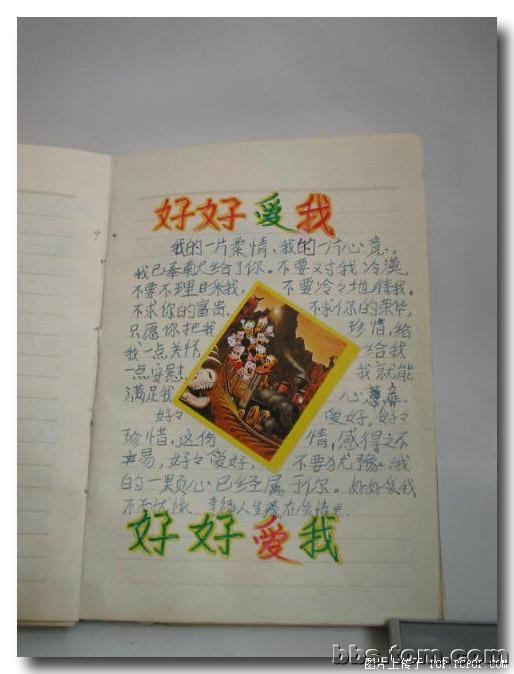 好好爱我
我的一片柔情、我的一片心意。
我已奉献给了你。不要对我冷漠
不要不理目来我。 不要冷冷地待我。
不求你的富贵, 不求你的荣华,
只愿你把我 珍惜,给
我一点关怀 给我
一点安慰 我就能
满足我 心意
好々 爱好,好々
珍惜,这份 情,感得之不
易,好々爱好, 不要犹豫。我
的一颗心已经属于你。好好爱我
不要犹豫 幸福人生
好好爱我
bbs.tom.com
图片上传于